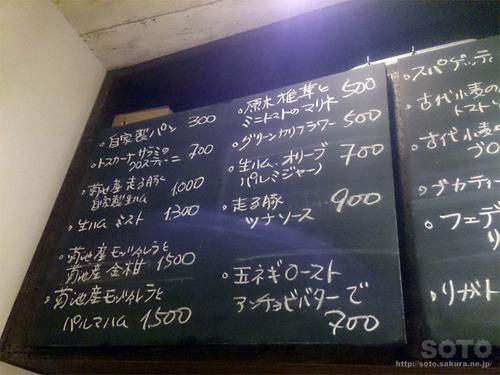 。自家製パン 300
。トスカーナサラミの
クロスティーニ 700
。菊池産走る豚
自家製生ハム 1000
。生ハムミスト 1300
。菊池産モッツァレラと
菊池産金柑 1500
。菊池産モッツァレラと
パルマハム 1500
。原木椎茸と
ミニトマトのマリネ 500
。グリーンカリフラワー 500
。生ハム、オリーブ
パルミジャーノ 700
。走る豚
ツナソース 900
。玉ネギロースト
アンチョビバターで
700
。スパゲッティ
。古代小麦の
トマト
。古代小麦
ブロ
。ブカティー
。フェデ
リ
。リガト
SOTO
http://soto.sakura.ne.jp/